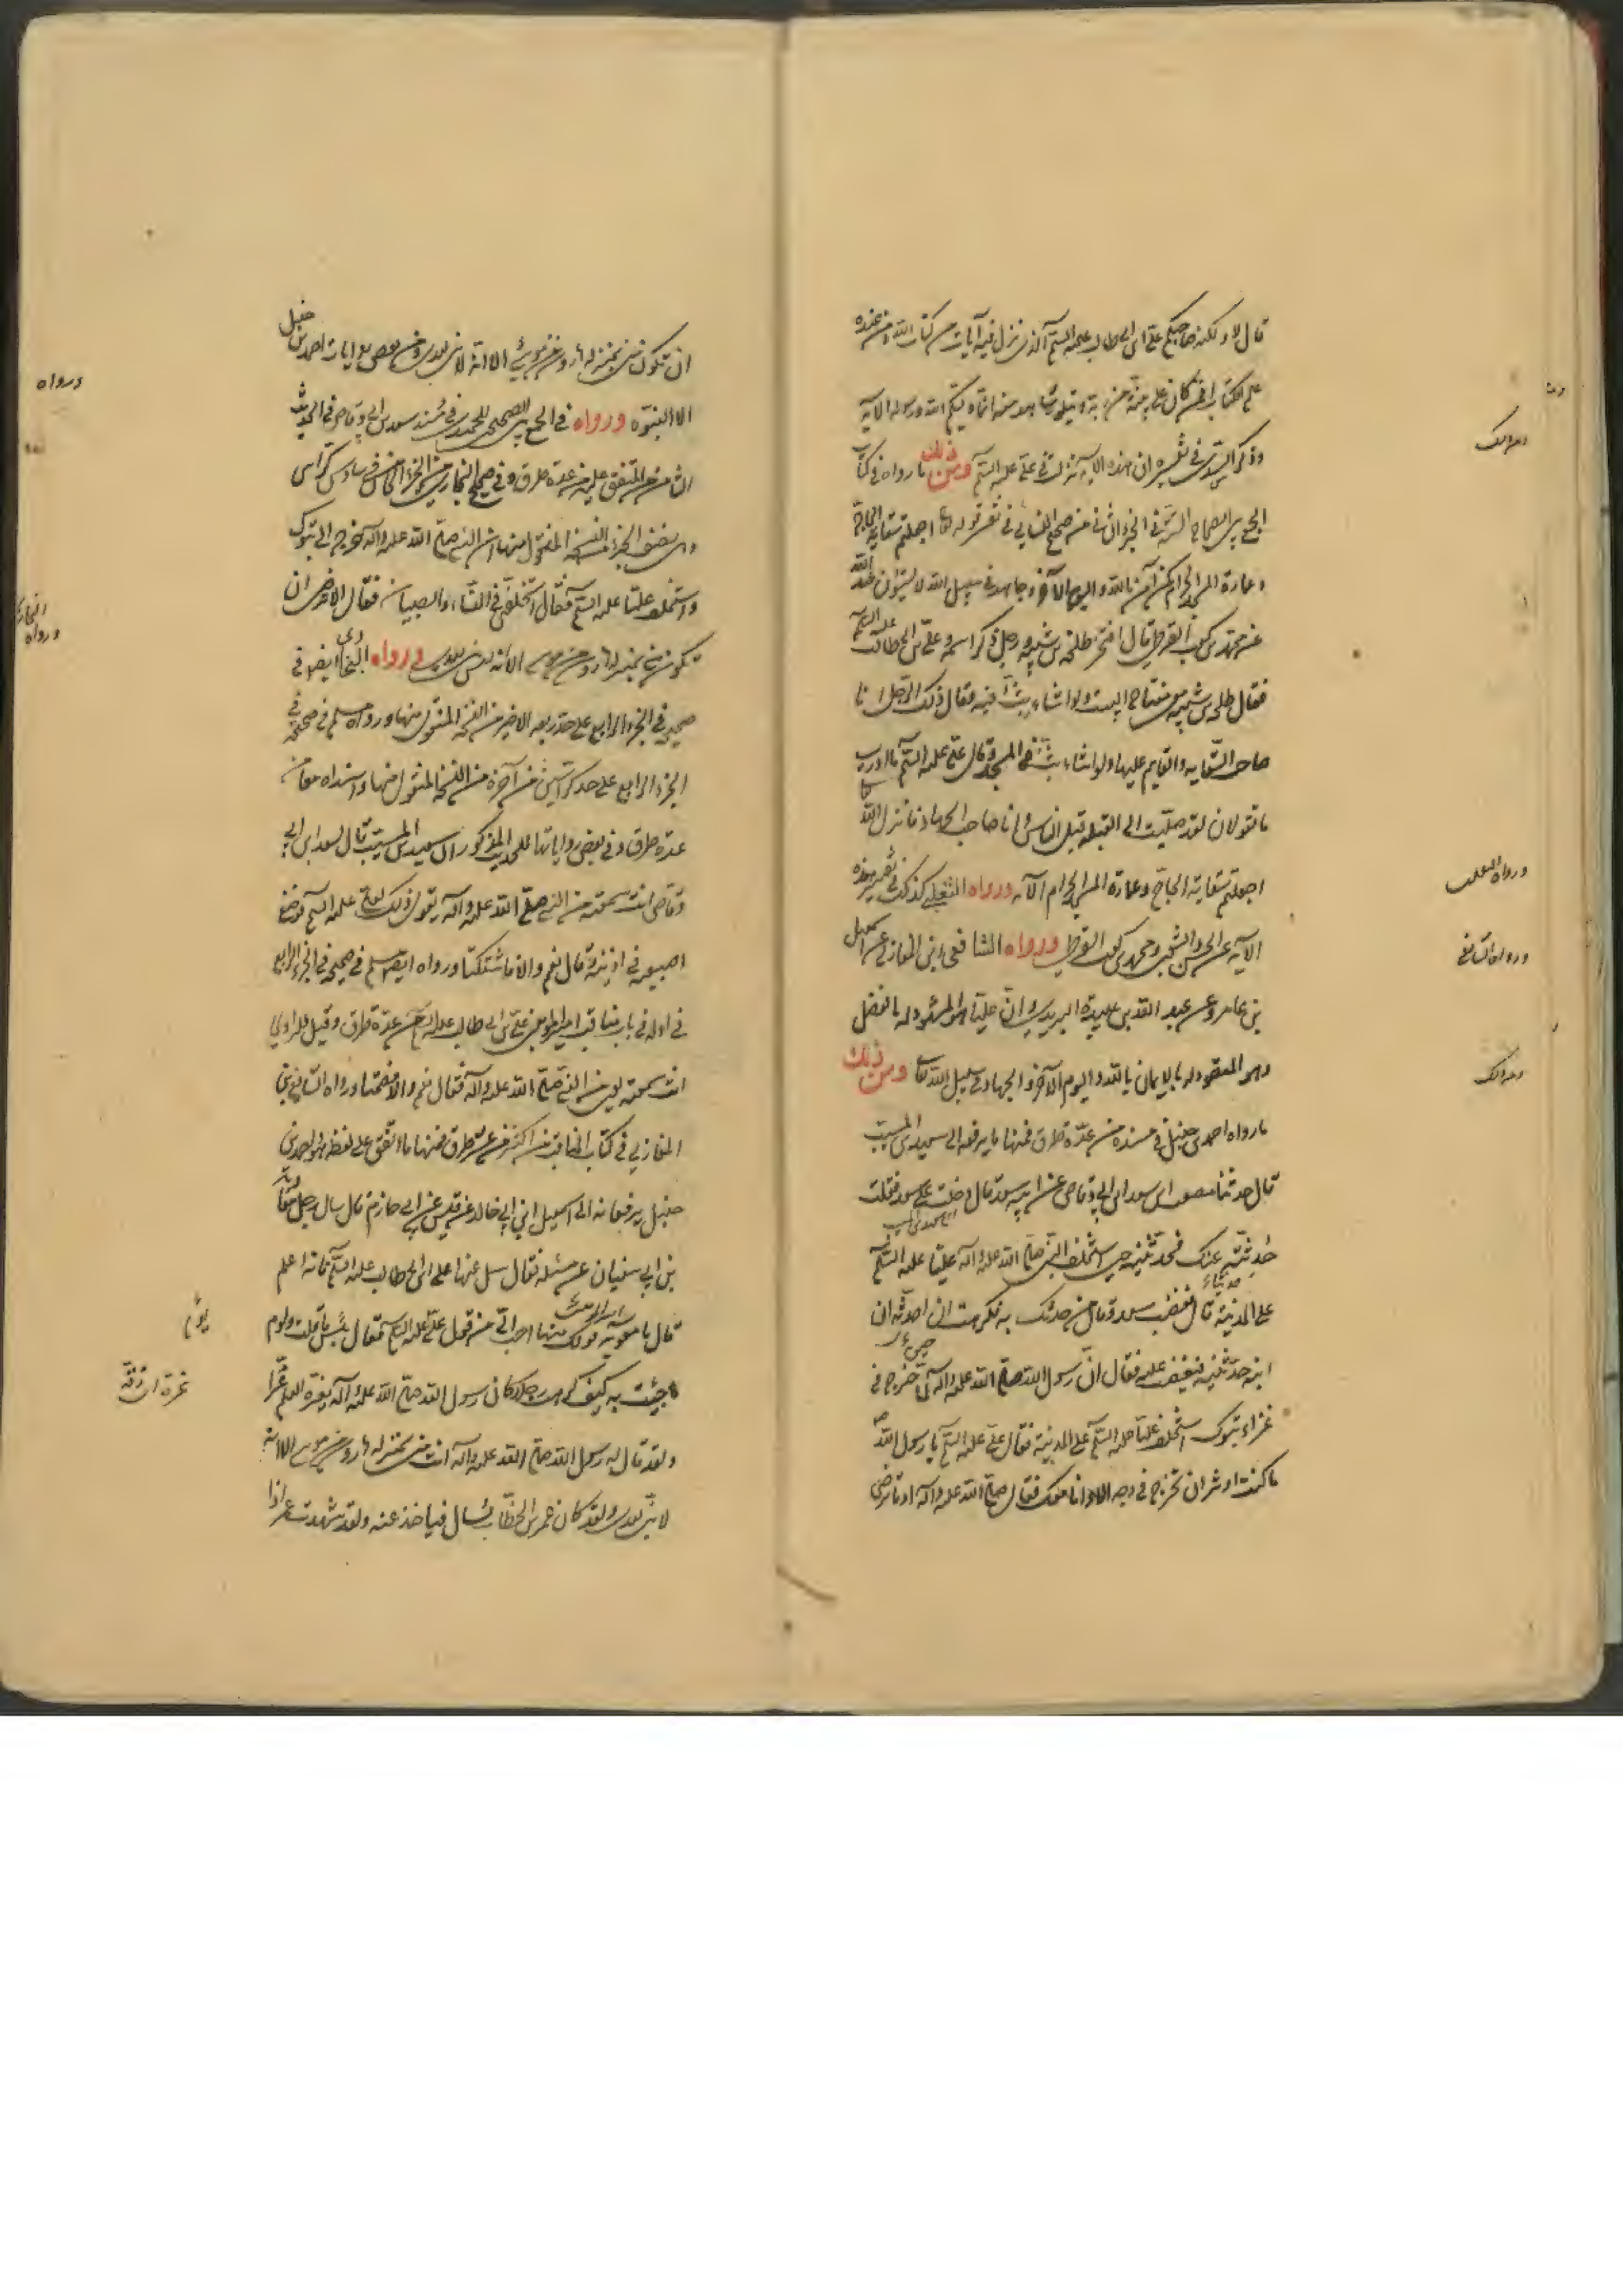 قال لا ولكنه صاحبكم علي بن ابي طالب عليه السلم الذي نزل فيه آيات من كتاب الله ومن عنده
علم الكتاب افمن كان على بينة من ربه ويتلوه شاهد منه انما وليكم الله ورسوله الآيه
وذكر السدي في تفسيره ان هذه الآيه نزلت في علي عليه السلم ومن ذلك ما رواه في كتاب
الجمع بين الصحاح الستة في الجزء الثاني من صحيح النسائي في تفسير قوله تعا اجعلتم سقاية الحاج
وعمارة المسجد الحرام كمن آمن بالله واليوم الآخر وجاهد في سبيل الله لا يستوون عند الله
عن محمد بن كعب القرظي قال افتخر طلحة بن شيبه ورجل ذكر اسمه وعلي بن ابي طالب عليه السلم
فقال طلحه بن شيبه معي مفتاح البيت ولو اشاء بت فيه فقال ذلك الرجل انا
صاحب السقايه والقايم عليها ولو اشاء بت في المسجد وقال علي عليه السلم ما ادري
ما تقولان لقد صليت الى القبله قبل الناس وانا صاحب الجهاد فانزل الله تعا
اجعلتم سقاية الحاج وعمارة المسجد الحرام الآيه ورواه الثعلبي كذلك في تفسير هذه
الآيه عن الحسن والشعبي ومحمد بن كعب القرظي ورواه الشافعي ابن المغازلي عن اسمعيل
بن عامر وعن عبد الله بن عبيدة البريدي وان عليا هو المشهود له بالفضل
وهو المقصود له بالايمان بالله واليوم الآخر والجهاد في سبيل الله تعا ومن ذلك
ما رواه احمد بن حنبل في مسنده من عدة طرق فمنها ما يرفعه الى سعيد بن المسيب
قال حدثنا مصعب ابن سعد ابن ابي وقاص عن ابيه سعد قال دخلت على سعد فقلت
حديث عنك فحدثنيه حين استخلف النبي صلى الله عليه وآله عليا عليه السلم
على المدينة قال فغضب سعد وقال من حدثك به فكرهت ان احدثه ان
ابنه حدثنيه فيغضب عليه فقال ان رسول الله صلى الله عليه وآله لما خرج في
غزاء تبوك استخلف عليا عليه السلم على المدينة فقال علي عليه السلم يا رسول الله
ما كنت اوثر ان تخرج في وجه الا وانا معك فقال صلى الله عليه وآله او ما ترضى
ورواه الثعلبي
ورواه الشافعي
ومن ذلك
ان تكون مني بمنزلة هارون من موسى الا انه لا نبي بعدي وفي بعض روايات احمد بن حنبل
الا النبوة ورواه في الجمع بين الصحيحين للحميدي في مسند سعد بن ابي وقاص في الحديث
الثامن من المتفق عليه من عدة طرق وفي صحيح البخاري من الجزء الخامس في سادس كراس
من نصف الجزء النسخة المنقول منها ان النبي صلى الله عليه وآله خرج الى تبوك
واستخلف عليا عليه السلم فقال اتخلفني في النساء والصبيان فقال الا ترضى ان
تكون مني بمنزلة هارون من موسى الا انه ليس نبي بعدي ورواه البخاري ايضا في
صحيحه في الجزء الرابع على حد ربعه الاخير من النسخه المنقول منها ورواه مسلم في صحيحه في
الجزء الرابع على حد كراسين من آخره من النسخة المنقول منها واسنداه معا من
عدة طرق وفي بعض رواياتها للحديث المذكور ان سعيد بن المسيب قال لسعد ابن ابي
وقاص انت سمعته من النبي صلى الله عليه وآله يقول ذلك لعلي عليه السلم فوضع
اصبعيه في اذنيه وقال نعم والا فاستكتا ورواه ايضا مسلم في صحيحه في الجزء الرابع
في اوله في باب مناقب امير المؤمنين علي بن ابي طالب عليه السلم من عدة طرق وقيل للراوي
انت سمعته يعني من النبي صلى الله عليه وآله فقال نعم والا فصمتا ورواه الشافعي ابن
المغازلي في كتاب المناقب من اكثر من عشر طرق فمنها ما اتفق على لفظه هو واحمد بن
حنبل يرفعانه الى اسمعيل ابن ابي خالد عن قيس عن ابي حازم قال سال رجل معاوية
بن ابي سفيان عن مسئلة فقال سل عنها علي ابن ابي طالب عليه السلم فانه اعلم
قال يا معويه قولك فيها احب الي من قول علي عليه السلم فقال بئس ما قلت ولؤم
ما جئت به كيف كرهت رجلا كان رسول الله صلى الله عليه وآله يغره العلم غرا
ولقد قال له رسول الله صلى الله عليه وآله انت مني بمنزلة هارون من موسى الا انه
لا نبي بعدي ولقد كان عمر بن الخطاب يسال فياخذ عنه ولقد شهدت عمر اذا
ورواه
ورواه البخاري
لؤم
غره اي زقه